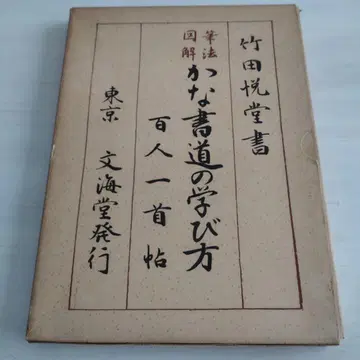 竹田悦堂書
筆法図解
かな書道の学び方
百人一首帖
東京 文海堂発行